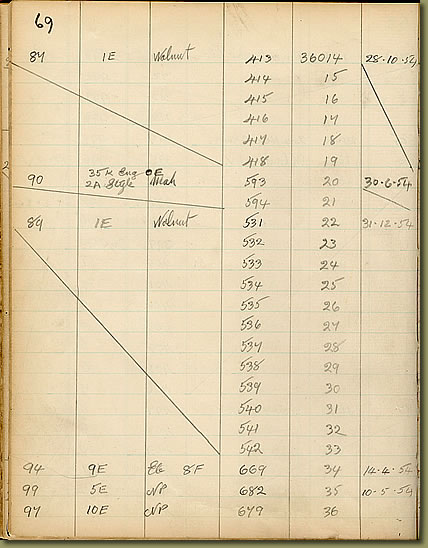 69
87 1E Walnut 413 36014 28·10·54
414 15
415 16
416 17
417 18
418 19
90 35 2A Mah 593 20 30·6·54
594 21
89 1E Walnut 531 22 31·12·54
532 23
533 24
534 25
535 26
536 27
537 28
538 29
539 30
540 31
541 32
542 33
94 9E 8F 669 34 14·4·54
99 5E NP 682 35 10·5·54
97 10E NP 679 36